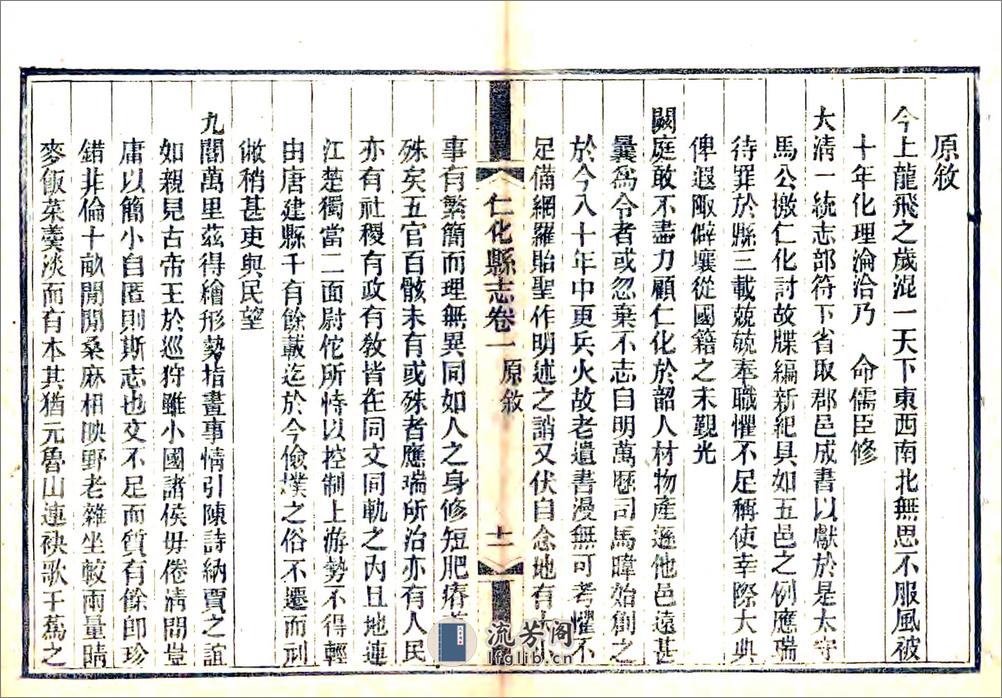 原敘
今上龍飛之歲混一天下東西南北無思不服風被
十年化理淪洽乃 命儒臣修
大清一統志部符下省取郡邑成書以獻於是太守
馬公檄仁化討故牒編新紀具如五邑之例應瑞
待罪於縣三載兢兢奉職懼不足稱使幸際大典
俾遐陬僻壤從國籍之末覲光
闕庭敢不盡力顧仁化於韶人材物產遜他邑遠甚
曩為令者或忽棄不志自明萬歷司馬暐始創之
於今八十年中更兵火故老遺書漫無可考懼不
足備網羅貽聖作明述之誚又伏自念地有大小
仁化縣志卷一 原敘 十一
事有繁簡而理無異同如人之身修短肥瘠
殊矣五官百骸未有或殊者應瑞所治亦有人民
亦有社稷有政有敎皆在同文同軌之內且地連
江楚獨當二面尉佗所恃以控制上游勢不得輕
由唐建縣千有餘載迄於今儉樸之俗不遷而刓
敝稍甚吏與民望
九閽萬里茲得繪形勢指畫事情引陳詩納賈之誼
如親見古帝王於巡狩雖小國諸侯毋倦淸問豈
庸以簡小自匿則斯志也文不足而質有餘卽珍
錯非倫十畝閒閒桑麻相映野老雜坐較雨量晴
麥飯菜羹淡而有本其猶元魯山連袂歌于蒍之
流芳阁
lfglib.cn